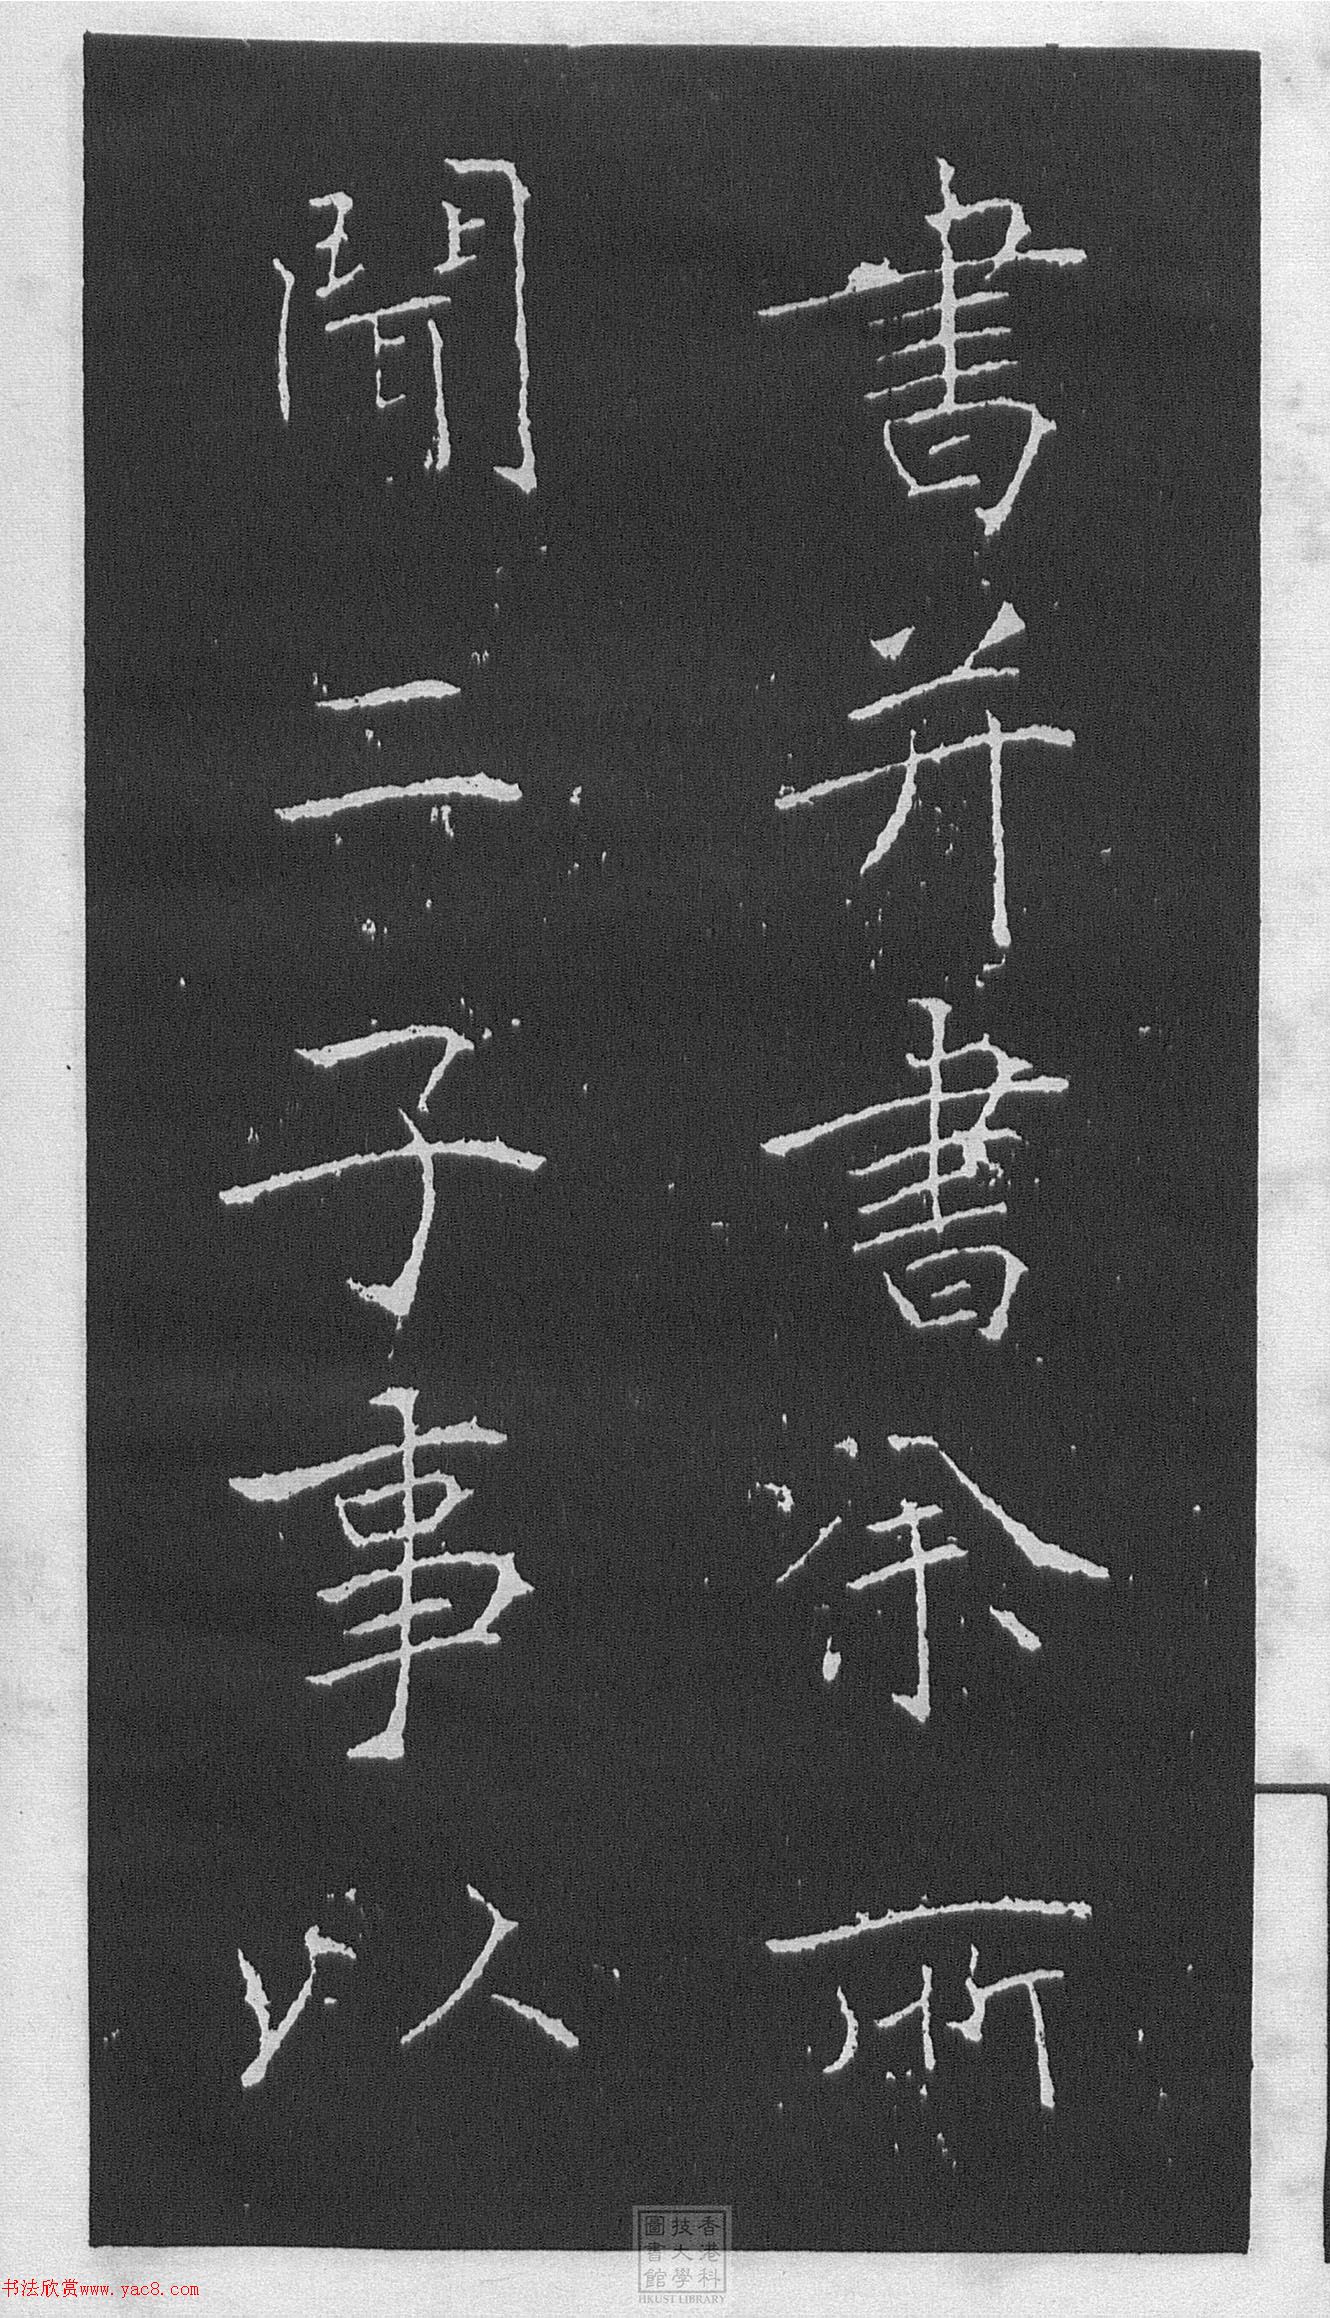 書并書涂所
聞二子事以
香港科
技大學
圖書館
HKUST LIBRARY
书法欣赏www.yac8.com